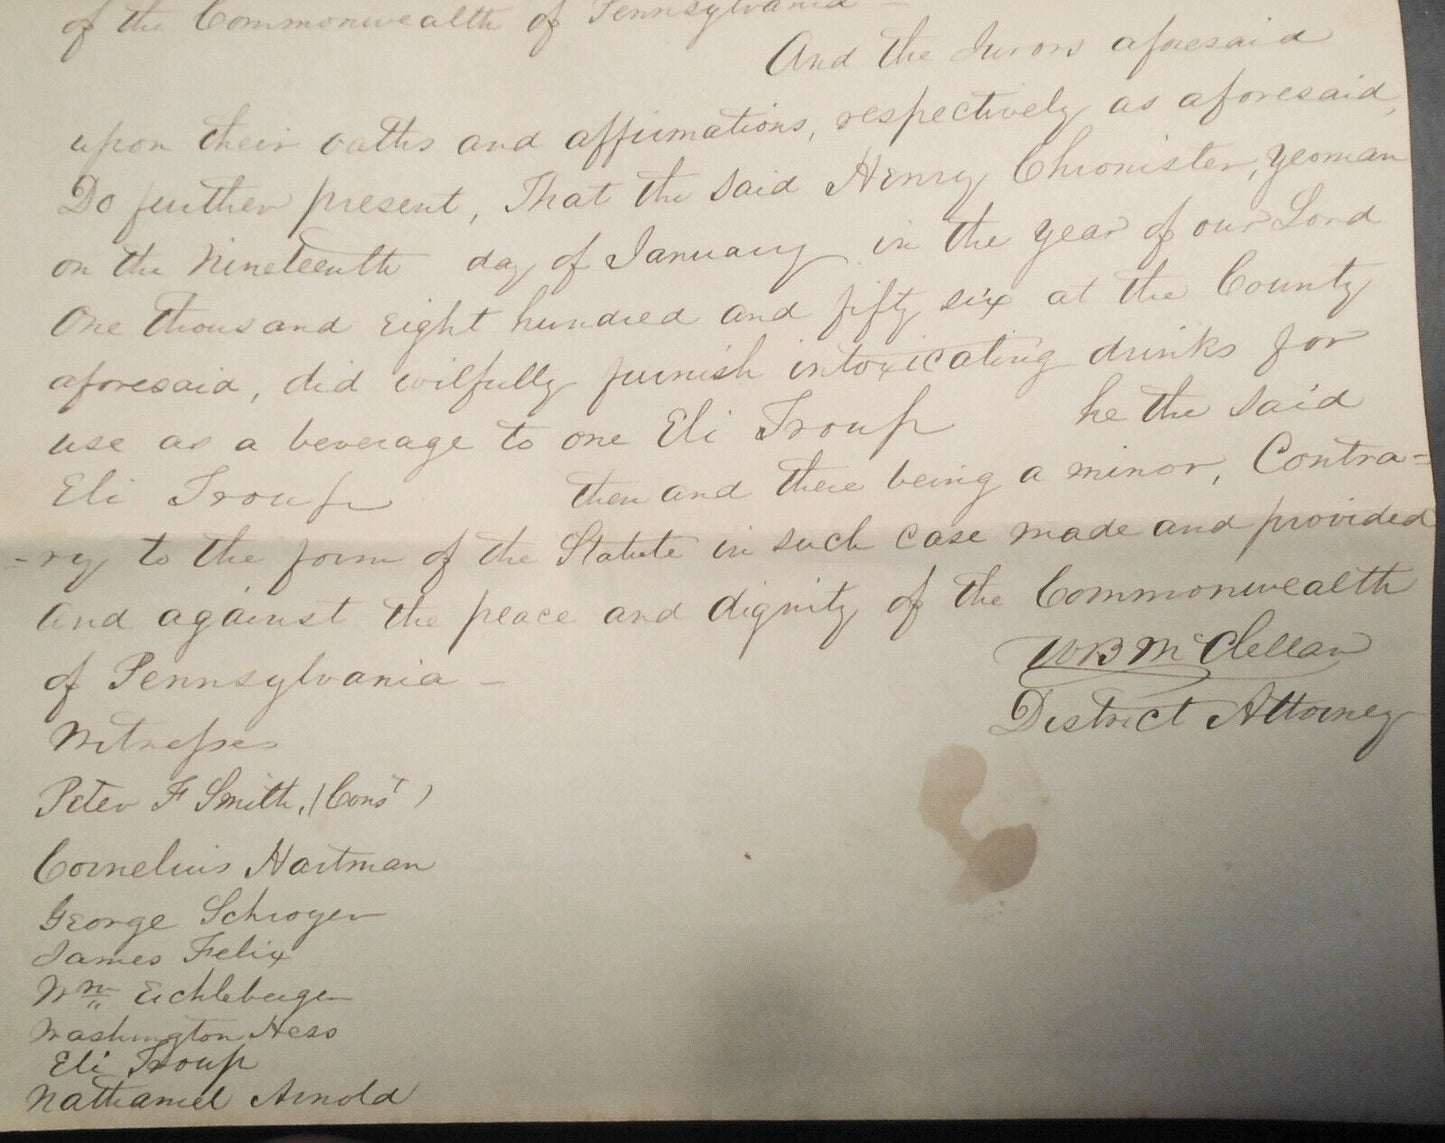 of the Commonwealth of Pennsylvania –
And the Jurors aforesaid
upon their oaths and affirmations, respectively as aforesaid,
Do further present, That the said Henry Chronister, yeoman
on the Nineteenth day of January in the year of our Lord
One thousand eight hundred and fifty six at the County
aforesaid, did wilfully furnish intoxicating drinks for
use as a beverage to one Eli Troup he the said
Eli Troup then and there being a minor, Contra=
-ry to the form of the Statute in such case made and provided
and against the peace and dignity of the Commonwealth
of Pennsylvania –
W B McClellan
District Attorney
Witnesses
Peter F Smith, (Const)
Cornelius Hartman
George Schroyer
James Felix
Wm Eichleberger
Washington Hess
Eli Troup
Nathaniel Arnold